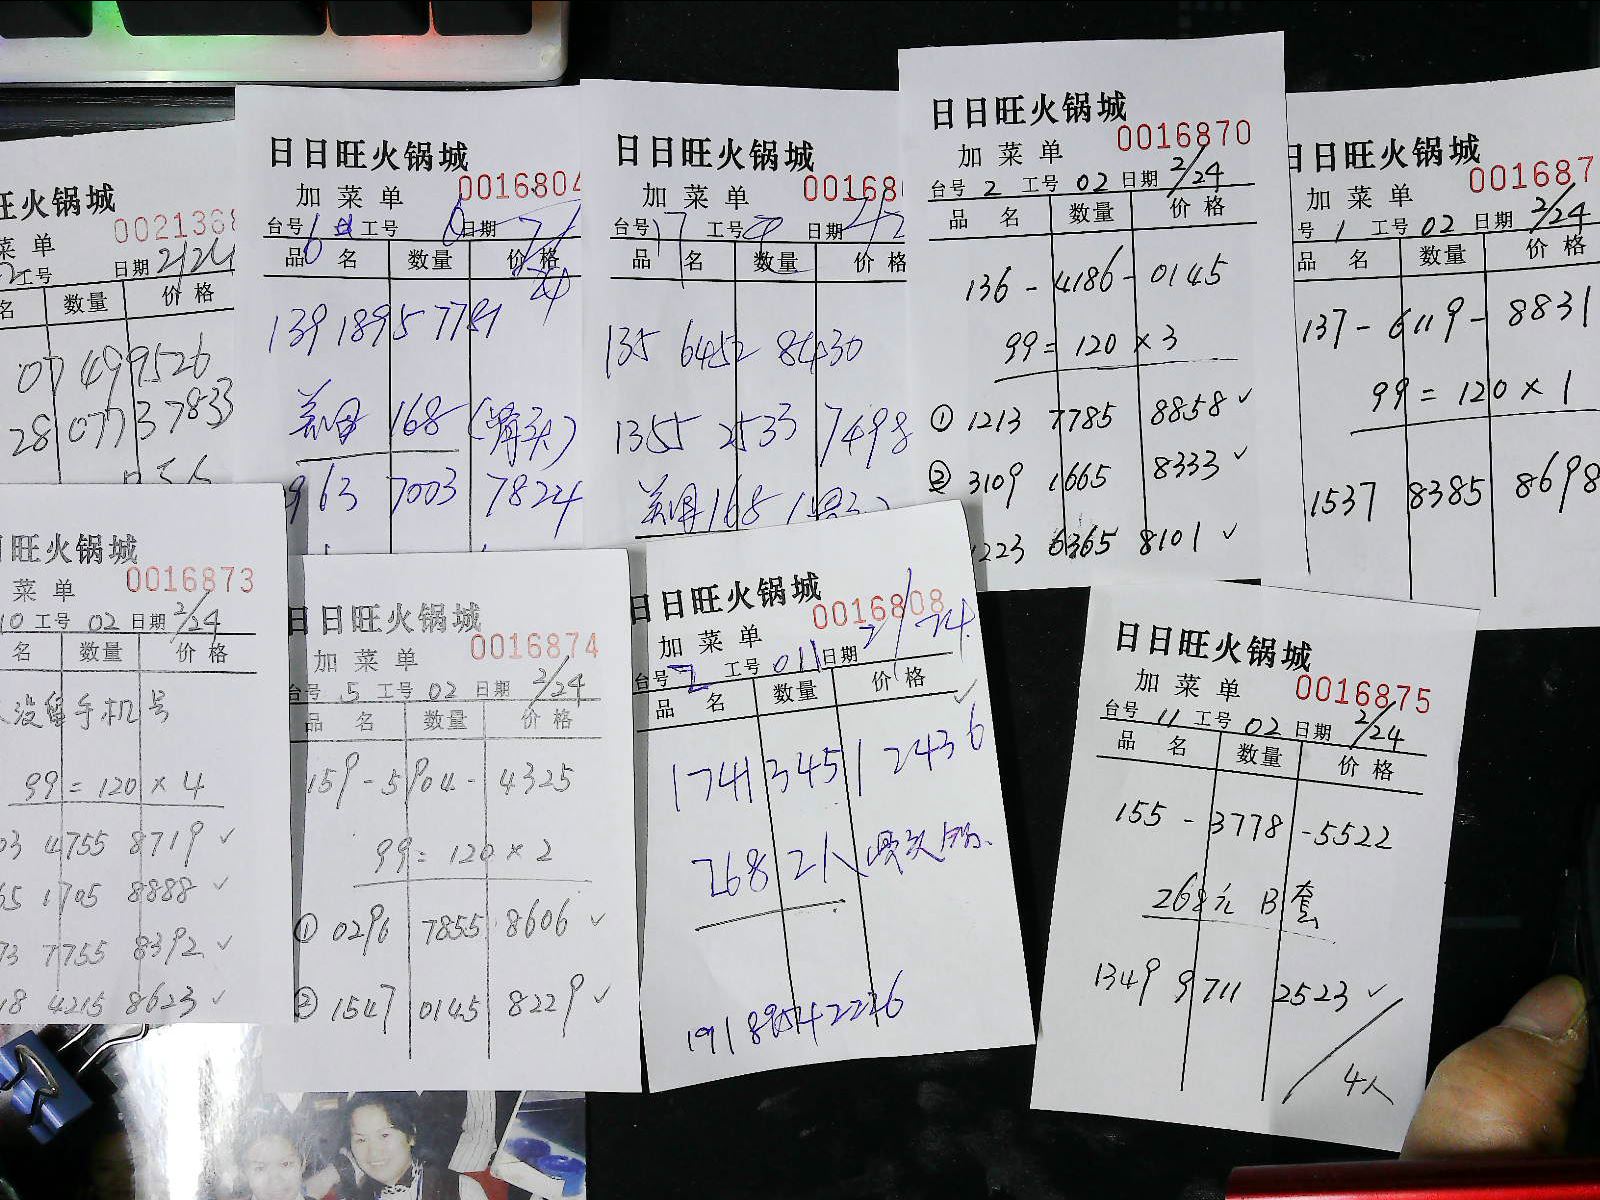 旺火锅城
002136
菜 单
工号 日期 2/24
名 数量 价格
07 499526
28 0773 7833
日日旺火锅城
0016804
加 菜 单
台号 6 工号 日期
品 名 数量 价格
139 1895 7781
美团 168 (骨头)
963 7003 7824
日日旺火锅城
00168
加 菜 单
台号 17 工号 日期
品 名 数量 价格
135 6452 8430
1355 2533 7498
美团 168
日日旺火锅城
0016870
加 菜 单
台号 2 工号 02 日期 2/24
品 名 数量 价格
136 - 4186 - 0145
99 = 120 × 3
① 1213 7785 8858 ✓
② 3109 1665 8333 ✓
1223 6365 8101 ✓
日日旺火锅城
001687
加 菜 单
号 1 工号 02 日期 2/24
品 名 数量 价格
137 - 6119 - 8831
99 = 120 × 1
1537 8385 8698
日旺火锅城
0016873
菜 单
10 工号 02 日期 2/24
名 数量 价格
没留手机号
99 = 120 × 4
03 4755 8719 ✓
65 1705 8888 ✓
73 7755 8392 ✓
18 4215 8623 ✓
日日旺火锅城
0016874
加 菜 单
台号 5 工号 02 日期 2/24
品 名 数量 价格
159 - 5904 - 4325
99 = 120 × 2
① 0296 7855 8606 ✓
② 1547 0145 8229 ✓
日日旺火锅城
0016808
加 菜 单
台号 2 工号 011 日期 2/24
品 名 数量 价格
1741 3451 2436
268 2人 骨头锅
日日旺火锅城
0016875
加 菜 单
台号 11 工号 02 日期 2/24
品 名 数量 价格
155 - 3778 - 5522
268元 B套
1349 9711 2523 ✓
4人